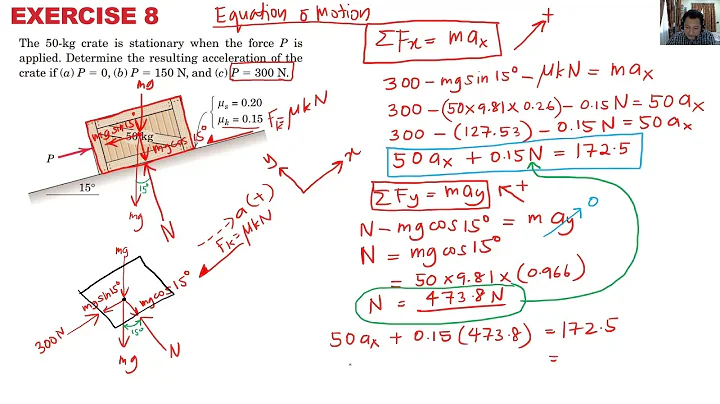 EXERCISE 8
Equation of Motion
The 50-kg crate is stationary when the force P is
applied. Determine the resulting acceleration of the
crate if (a) P = 0, (b) P = 150 N, and (c) P = 300 N.
mg
mg sin 15°
50 kg
mg cos 15°
μs = 0.20
μk = 0.15
Fk = μkN
P
15°
15°
mg
N
y
x
a (+)
Fk = μkN
mg
mg sin 15°
mg cos 15°
300 N
15°
mg
N
ΣFx = max
+
300 - mg sin 15° - μkN = max
300 - (50×9.81×0.26) - 0.15N = 50ax
300 - (127.53) - 0.15N = 50ax
50ax + 0.15N = 172.5
ΣFy = may
+
N - mg cos 15° = m ay
0
N = mg cos 15°
= 50×9.81×(0.966)
N = 473.8 N
50ax + 0.15 (473.8) = 172.5
=